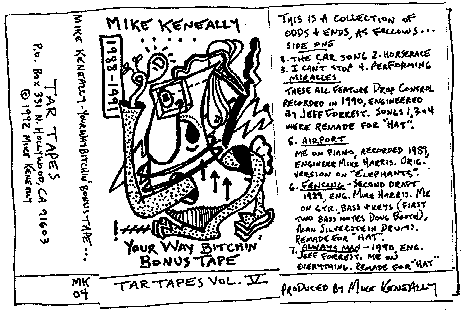 TAR TAPES
P.O. BOX 331 N. HOLLYWOOD, CA 91603
© 1992 MIKE KENEALLY
MIKE KENEALLY - YOUR WAY BITCHIN' BONUS TAPE...
MIKE KENEALLY
1988-1991
YOUR WAY BITCHIN'
BONUS TAPE
MK
04
TAR TAPES VOL. IV
THIS IS A COLLECTION OF
ODDS & ENDS, AS FOLLOWS...
SIDE ONE
1. THE CAR SONG 2. HORSERACE
3. I CAN'T STOP 4. PERFORMING
MIRACLES
THESE ALL FEATURE DROP CONTROL
RECORDED IN 1990, ENGINEERED
BY JEFF FORREST. SONGS 1, 3 & 4
WERE REMADE FOR "HAT".
5. AIRPORT
ME ON PIANO, RECORDED 1989,
ENGINEER MIKE HARRIS. ORIG.
VERSION ON "ELEPHANTS".
6. FENCING - SECOND DRAFT
1989, ENG. MIKE HARRIS. ME
ON GTR, BASS & KEYS (FIRST
TWO BASS NOTES DOUG BOOTH),
ALAN SILVERSTEIN DRUMS.
REMADE FOR "HAT".
7. ALWAYS MAN - 1990, ENG.
JEFF FORREST. ME ON
EVERYTHING. REMADE FOR "HAT"
PRODUCED BY MIKE KENEALLY